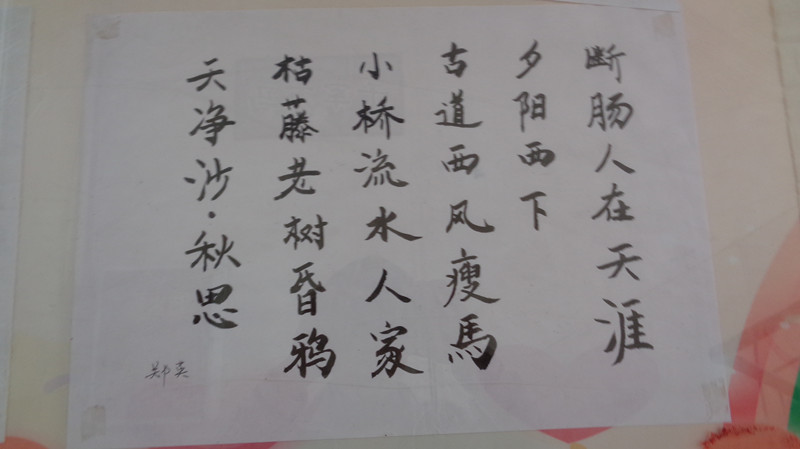 天净沙·秋思
枯藤老树昏鸦
小桥流水人家
古道西风瘦馬
夕阳西下
断肠人在天涯
郑英